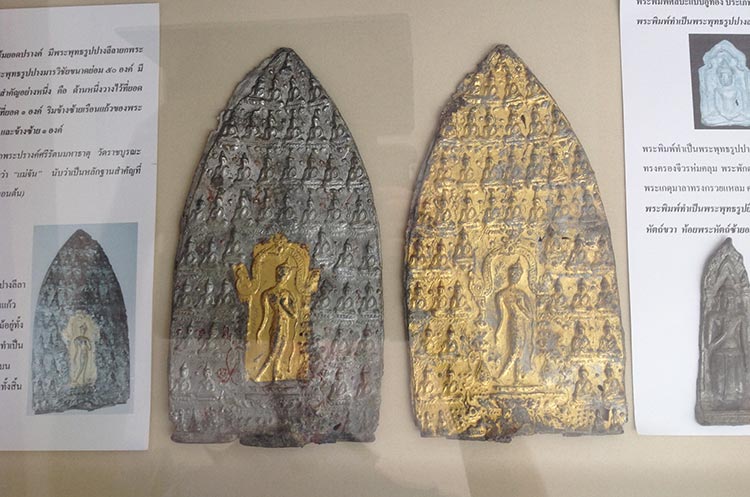 ้มยอดปรางค์ มีพระพุทธรูปปางลีลายกพระ
ะพุทธรูปปางมารวิชัยขนาดย่อม ๕๐ องค์ มี
สำคัญอย่างหนึ่ง คือ ด้านหนึ่งวางไว้ที่ยอด
ที่ยอด ๑ องค์ ริมข้างซ้ายเรือนแก้วของพระ
และข้างซ้าย ๑ องค์
กพระปรางค์ศรีรัตนมหาธาตุ วัดราชบูรณะ
ว่า "แม่จัน" นับว่าเป็นหลักฐานสำคัญที่
อนต้น)
ปางลีลา
แก้ว
นั่อยู่ทั้ง
ทำเป็น
บน
ทั้งสิ้น
พระพิมพ์ศิลปะแบบอู่ทอง ประเภ
พระพิมพ์ทำเป็นพระพุทธรูปปางส
พระพิมพ์ทำเป็นพระพุทธรูปปา
ทรงครองจีวรห่มคลุม พระพัก
พระเกตุมาลาทรงกรวยแหลม
พระพิมพ์ทำเป็นพระพุทธรูปยื
หัตถ์ขวา ห้อยพระหัตถ์ซ้ายอ